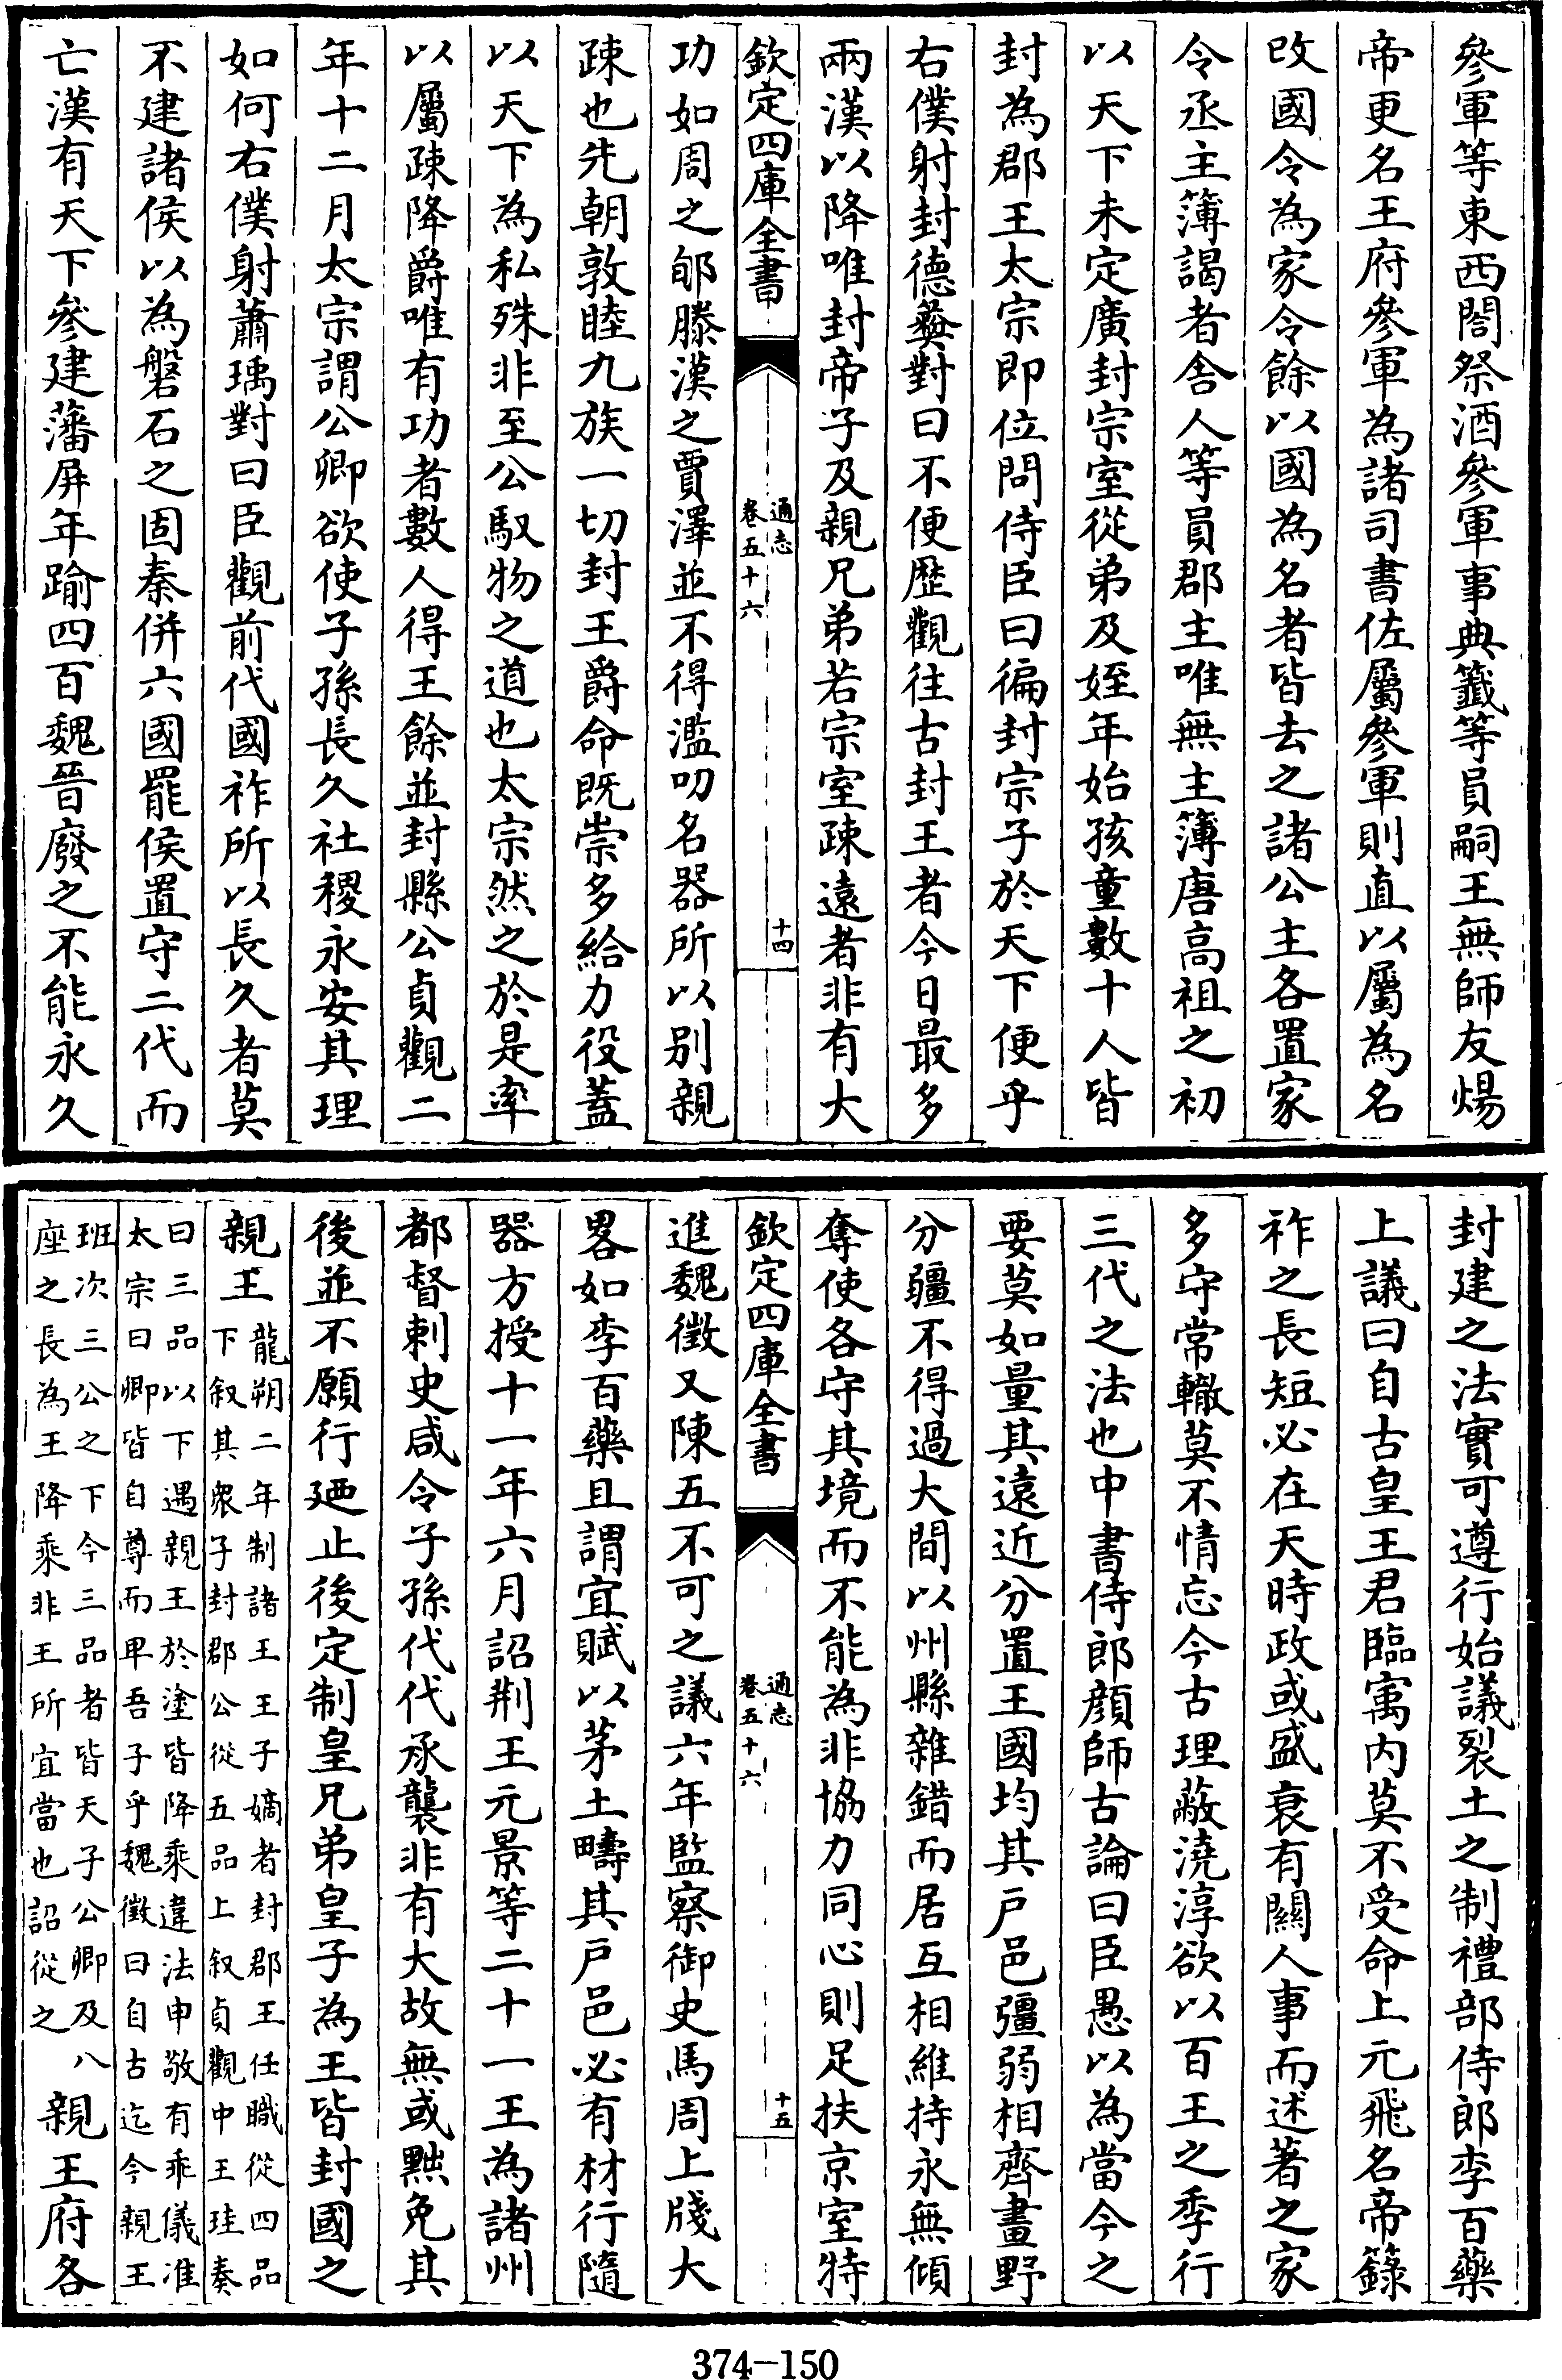 參軍等東西閤祭酒參軍事典籤等員嗣王無師友煬
帝更名王府參軍為諸司書佐屬參軍則直以屬為名
改國令為家令餘以國為名者皆去之諸公主各置家
令丞主簿謁者舍人等員郡主唯無主簿唐高祖之初
以天下未定廣封宗室從弟及姪年始孩童數十人皆
封為郡王太宗即位問侍臣曰徧封宗子於天下便乎
右僕射封德彝對曰不便歴觀往古封王者今日最多
兩漢以降唯封帝子及親兄弟若宗室疎遠者非有大
欽定四庫全書
通志
卷五十六
十四
功如周之郇滕漢之賈澤並不得濫叨名器所以别親
疎也先朝敦睦九族一切封王爵命既崇多給力役蓋
以天下為私殊非至公馭物之道也太宗然之於是率
以屬疎降爵唯有功者數人得王餘並封縣公貞觀二
年十二月太宗謂公卿欲使子孫長久社稷永安其理
如何右僕射蕭瑀對曰臣觀前代國祚所以長久者莫
不建諸侯以為磐石之固秦併六國罷侯置守二代而
亡漢有天下參建藩屏年踰四百魏晉廢之不能永久
封建之法實可遵行始議裂土之制禮部侍郎李百藥
上議曰自古皇王君臨寓内莫不受命上元飛名帝籙
祚之長短必在天時政或盛衰有關人事而述著之家
多守常轍莫不情忘今古理蔽澆淳欲以百王之季行
三代之法也中書侍郎顔師古論曰臣愚以為當今之
要莫如量其遠近分置王國均其戸邑彊弱相齊畫野
分疆不得過大間以州縣雜錯而居互相維持永無傾
奪使各守其境而不能為非協力同心則足扶京室特
欽定四庫全書
通志
卷五十六
十五
進魏徵又陳五不可之議六年監察御史馬周上牋大
畧如李百藥且謂宜賦以茅土疇其戸邑必有材行隨
器方授十一年六月詔荆王元景等二十一王為諸州
都督刺史咸令子孫代代承襲非有大故無或黜免其
後並不願行廼止後定制皇兄弟皇子為王皆封國之
親王
龍朔二年制諸王王子嫡者封郡王任職從四品
下叙其衆子封郡公從五品上叙貞觀中王珪奏
曰三品以下遇親王於塗皆降乘違法申敬有乖儀准
太宗曰卿皆自尊而卑吾子乎魏徵曰自古迄今親王
班次三公之下今三品者皆天子公卿及八
座之長為王降乘非王所宜當也詔從之
親王府各
374-150